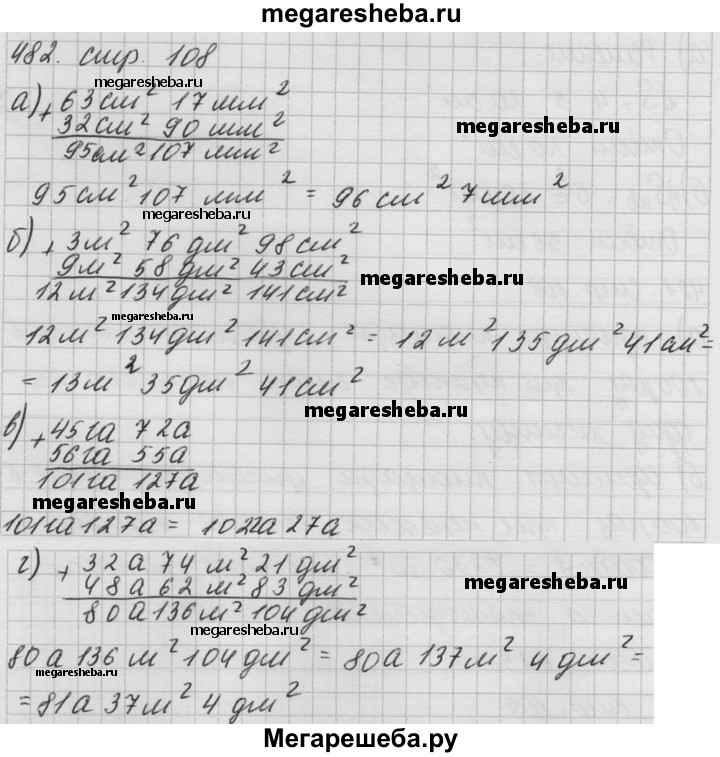 megaresheba.ru
482. стр. 108
megaresheba.ru
а) + 63см² 17мм²
32см² 90 мм²
megaresheba.ru
95см² 107 мм²
95см² 107 мм² = 96 см² 7мм²
megaresheba.ru
б) + 3м² 76 дм² 98 см²
9м² 58 дм² 43 см²
megaresheba.ru
12 м² 134 дм² 141 см²
megaresheba.ru
12 м² 134 дм² 141 см² = 12 м² 135 дм² 41 см² =
= 13м² 35 дм² 41 см²
megaresheba.ru
в) + 45га 72а
56га 55а
101га 127а
megaresheba.ru
101га 127а = 102га 27а
г) + 32а 74 м² 21 дм²
48а 62 м² 83 дм²
megaresheba.ru
80а 136 м² 104 дм²
megaresheba.ru
80а 136 м² 104 дм² = 80а 137м² 4 дм² =
megaresheba.ru
= 81а 37м² 4 дм²
Мегарешеба.ру